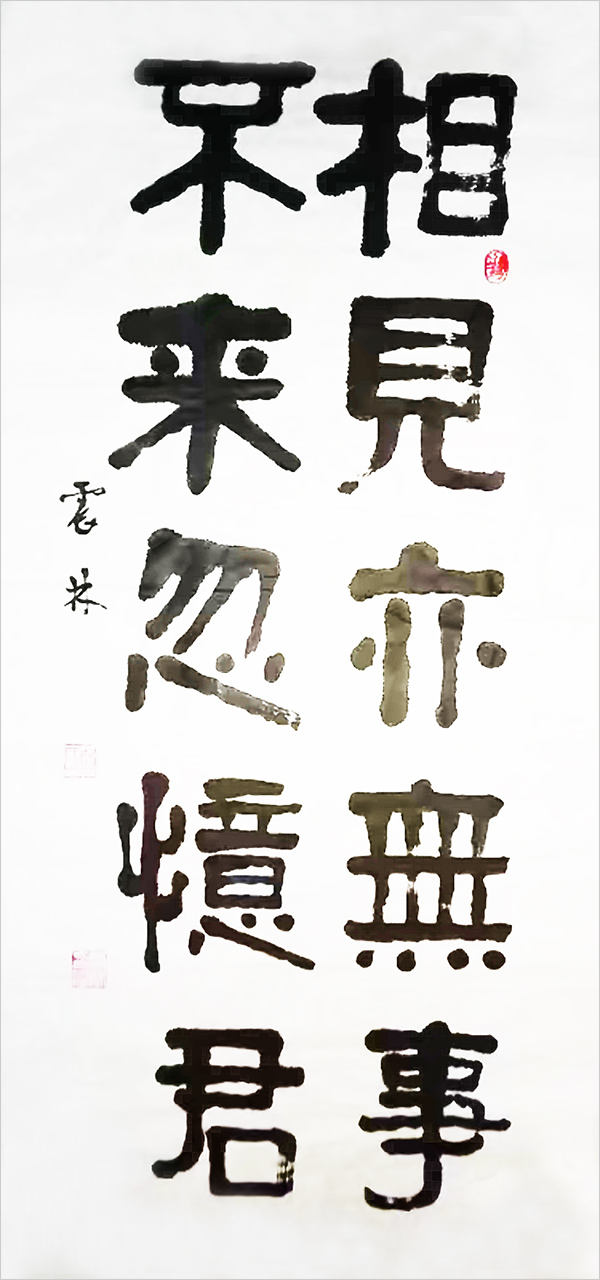 相見亦無事
不来忽憶君
震林